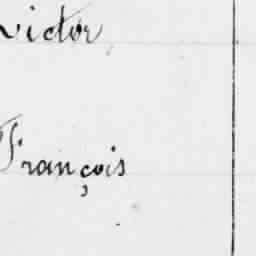 Victor
François